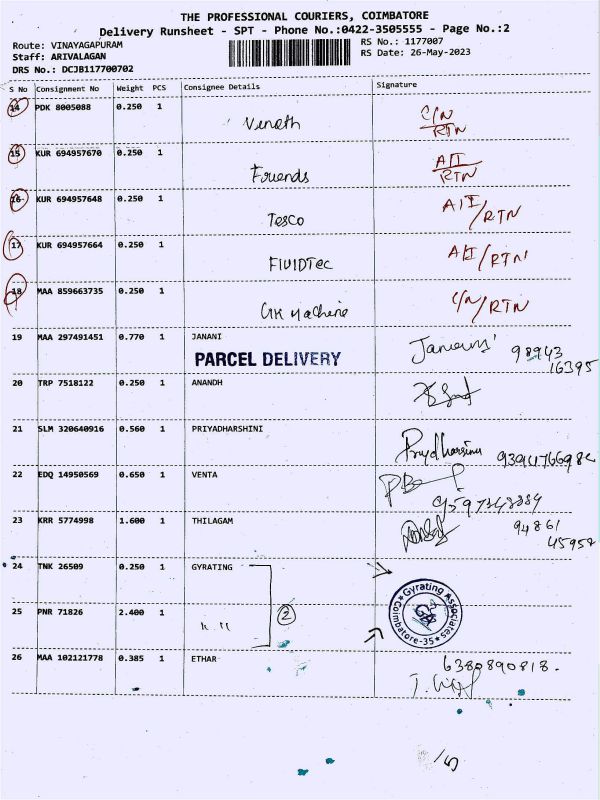 THE PROFESSIONAL COURIERS, COIMBATORE
Delivery Runsheet - SPT - Phone No.:0422-3505555 - Page No.:2
Route: VINAYAGAPURAM
RS No.: 1177007
Staff: ARIVALAGAN
RS Date: 26-May-2023
DRS No.: DCJB117700702
S No Consignment No Weight PCS Consignee Details Signature
14 PDK 8005088 0.250 1 Vineth C/N RTN
15 KUR 694957670 0.250 1 Friends A/I RTN
16 KUR 694957648 0.250 1 TesCo A/I/RTN
17 KUR 694957664 0.250 1 FlUIDTec A/I/RTN
18 MAA 859663735 0.250 1 GK Machine C/N/RTN
19 MAA 297491451 0.770 1 JANANI
PARCEL DELIVERY
98943
16395
20 TRP 7518122 0.250 1 ANANDH
21 SLM 320640916 0.560 1 PRIYADHARSHINI Priydharsini
22 EDQ 14950569 0.650 1 VENTA
23 KRR 5774998 1.600 1 THILAGAM
94861
24 TNK 26509 0.250 1 GYRATING
Gyrating Associates
Coimbatore-35
25 PNR 71826 2.400 1 2
26 MAA 102121778 0.385 1 ETHAR 6380890818.